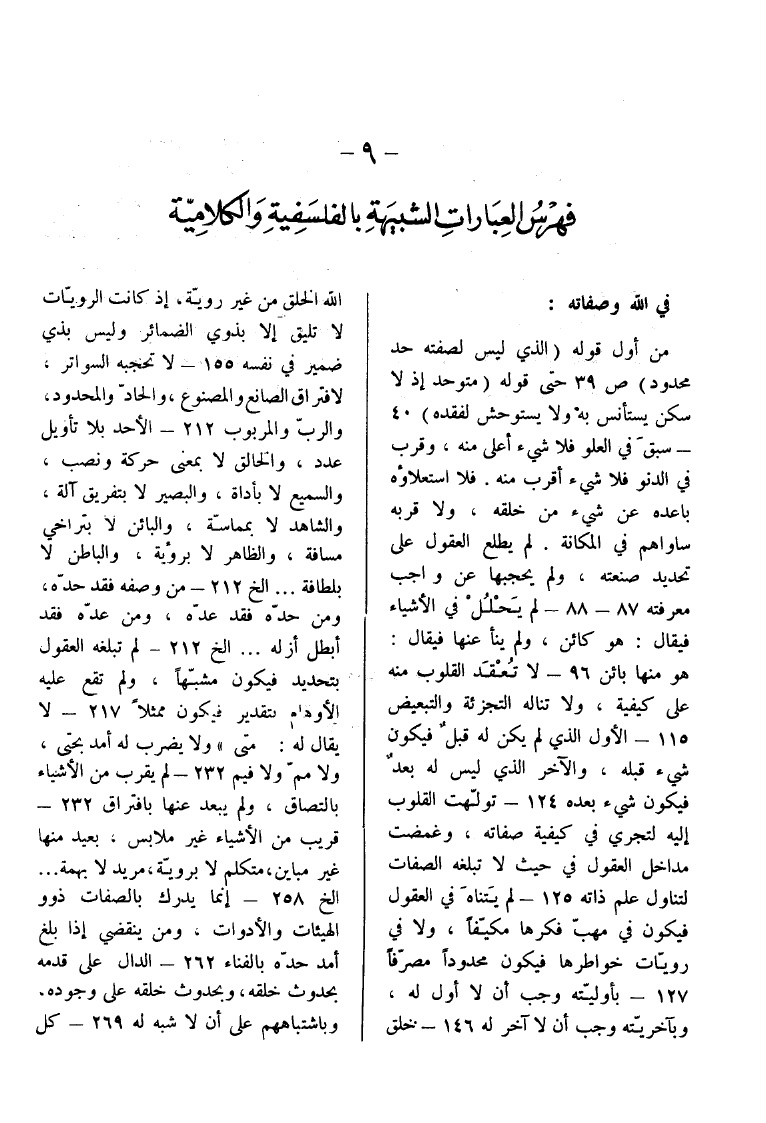 — ٩ —
فهرس العبارات الشبيهة بالفلسفية والكلامية
في الله وصفاته :
من أول قوله ( الذي ليس لصفته حد
محدود ) ص ٣٩ حتى قوله ( متوحد إذ لا
سكن يستأنس به ولا يستوحش لفقده ) ٤٠
— سبق في العلو فلا شيء أعلى منه ، وقرب
في الدنو فلا شيء أقرب منه . فلا استعلاؤه
باعده عن شيء من خلقه ، ولا قربه
ساواهم في المكانة . لم يطلع العقول على
تحديد صنعته ، ولم يحجبها عن واجب
معرفته ٨٧ — ٨٨ — لم يَحْلُلْ في الأشياء
فيقال : هو كائن ، ولم ينأ عنها فيقال :
هو منها بائن ٩٦ — لا تُعْقَد القلوب منه
على كيفية ، ولا تناله التجزئة والتبعيض
١١٥ — الأول الذي لم يكن له قبلٌ فيكون
شيء قبله ، والآخر الذي ليس له بعدٌ
فيكون شيء بعده ١٢٤ — تولّهت القلوب
إليه لتجري في كيفية صفاته ، وغمضت
مداخل العقول في حيث لا تبلغه الصفات
لتناول علم ذاته ١٢٥ — لم يَتَناه في العقول
فيكون في مهبّ فكرها مكيّفاً ، ولا في
رويّات خواطرها فيكون محدوداً مصرّفاً
١٢٧ — بأوليّته وجب أن لا أول له ،
وبآخريّته وجب أن لا آخر له ١٤٦ — خلق
الله الخلق من غير رويّة ، إذ كانت الرويّات
لا تليق إلا بذوي الضمائر وليس بذي
ضمير في نفسه ١٥٥ — لا تحجبه السواتر ،
لافتراق الصانع والمصنوع ، والحادّ والمحدود ،
والربّ والمربوب ٢١٢ — الأحد بلا تأويل
عدد ، والخالق لا بمعنى حركة ونصب ،
والسميع لا بأداة ، والبصير لا بتفريق آلة ،
والشاهد لا بمماسّة ، والبائن لا بتراخي
مسافة ، والظاهر لا برؤية ، والباطن لا
بلطافة ... الخ ٢١٢ — من وصفه فقد حدّه ،
ومن حدّه فقد عدّه ، ومن عدّه فقد
أبطل أزله ... الخ ٢١٢ — لم تبلغه العقول
بتحديد فيكون مشبّهاً ، ولم تقع عليه
الأوهام بتقدير فيكون ممثلاً ٢١٧ — لا
يقال له : متى » ولا يضرب له أمد بحتى ،
ولا ممّ ولا فيم ٢٣٢ — لم يقرب من الأشياء
بالتصاق ، ولم يبعد عنها بافتراق ٢٣٢ —
قريب من الأشياء غير ملابس ، بعيد منها
غير مباين ، متكلم لا برويّة ، مريد لا بهمة ...
الخ ٢٥٨ — إنما يدرك بالصفات ذوو
الهيئات والأدوات ، ومن ينقضي إذا بلغ
أمد حدّه بالفناء ٢٦٢ — الدال على قدمه
بحدوث خلقه ، وبحدوث خلقه على وجوده .
وباشتباههم على أن لا شبه له ٢٦٩ — كل